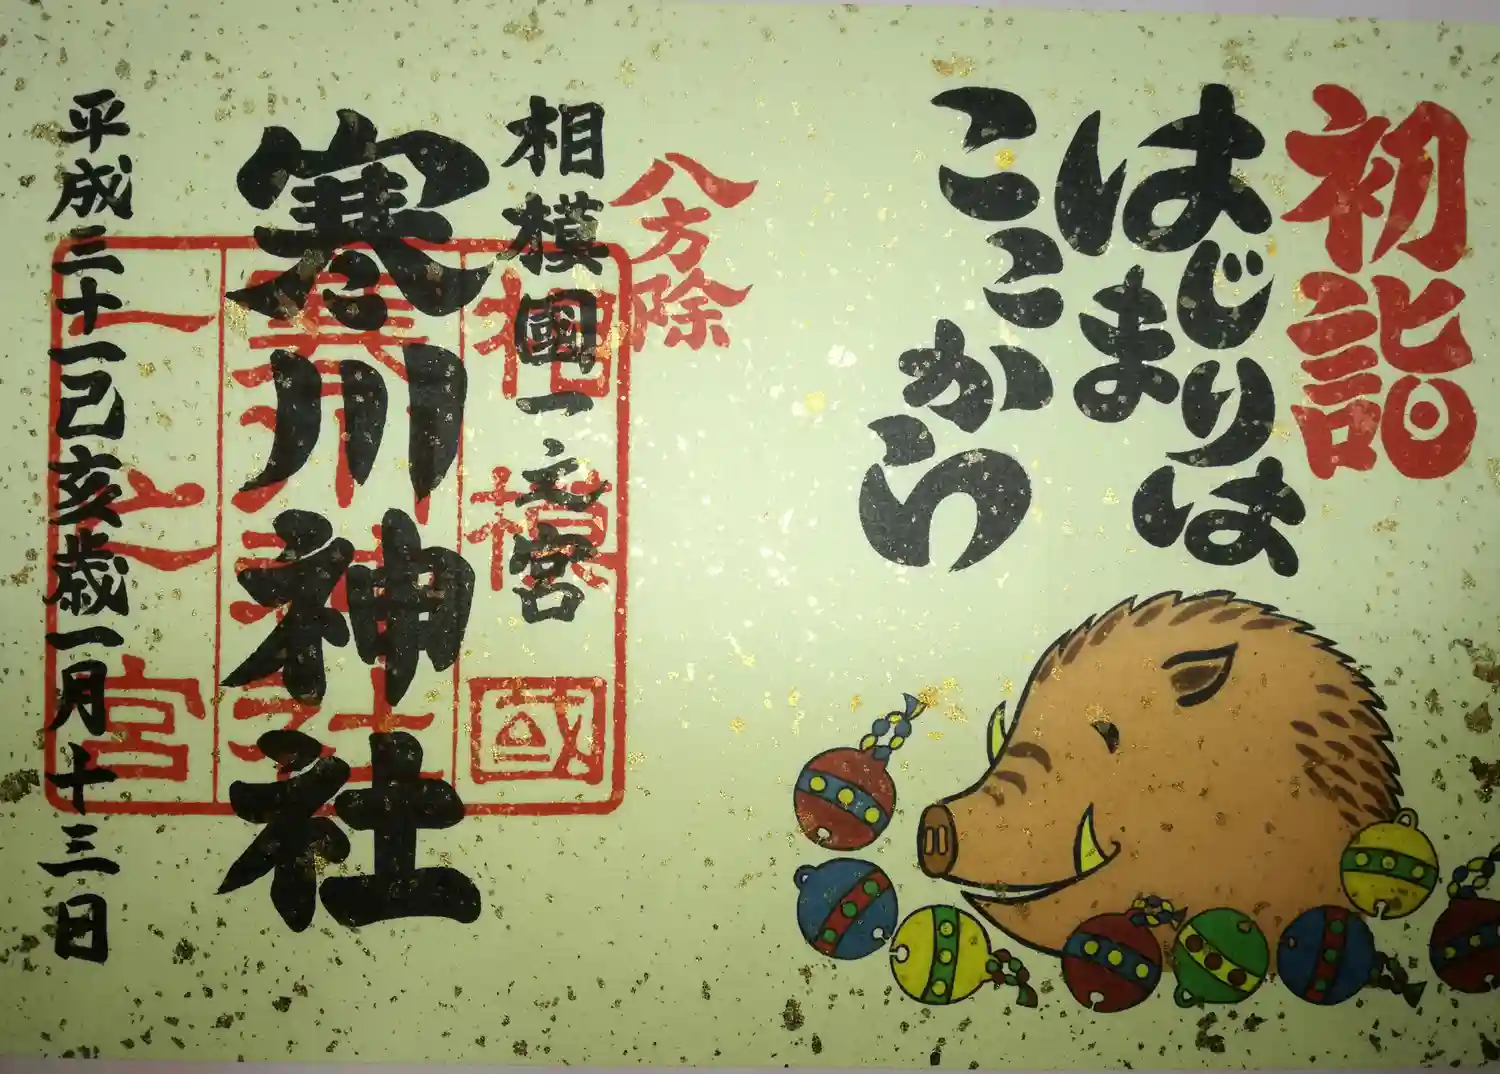 初詣
はじりは
はじまりは
ここから
八方除
相模國一之宮
相模國
寒川神社
寒川神社
一之宮
平成三十一己亥歳一月十三日